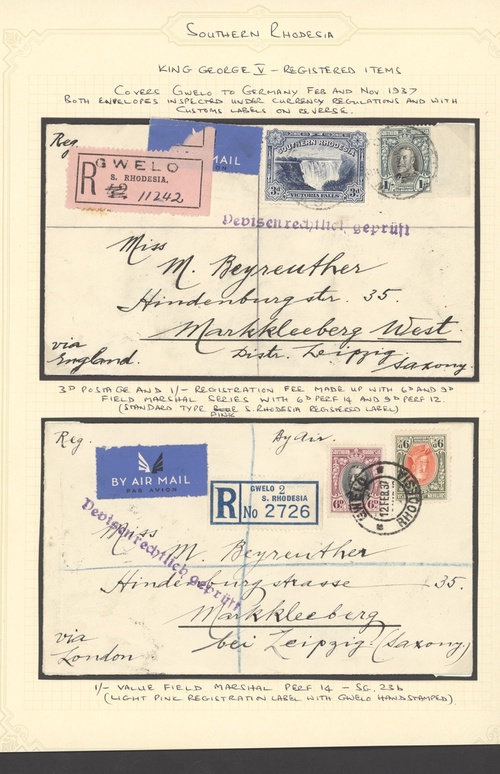 SOUTHERN RHODESIA
KING GEORGE V – REGISTERED ITEMS
COVERS GWELO TO GERMANY FEB AND NOV 1937
BOTH ENVELOPES INSPECTED UNDER CURRENCY REGULATIONS AND WITH
CUSTOMS LABELS ON REVERSE.
Reg.
MAIL
R
GWELO
S. RHODESIA,
11242
SOUTHERN RHODESIA
3d 3d
VICTORIA FALLS
1/-
Devisenrechtlich geprüft
Miss
M. Beyreuther
Hindenburgstr. 35.
Markkleeberg West.
Distr. Leipzig
Saxony.
via
England.
3D POSTAGE AND 1/- REGISTRATION FEE MADE UP WITH 6D AND 9D
FIELD MARSHAL SERIES WITH 6D PERF 14 AND 9D PERF 12.
(STANDARD TYPE S. RHODESIA REGISTERED LABEL)
PINK
Reg.
By Air.
BY AIR MAIL
PAR AVION
R
GWELO 2
S. RHODESIA
No 2726
6d 6d
9d 9d
GWELO
12 FEB 37
RHODESIA
Devisenrechtlich geprüft
Miss M. Beyreuther
Hindenburgstrasse 35.
Markkleeberg
bei Leipzig. (Saxony.)
via
London
1/- VALUE FIELD MARSHAL PERF 14 – SG. 23b
(LIGHT PINK REGISTRATION LABEL WITH GWELO HANDSTAMPED)